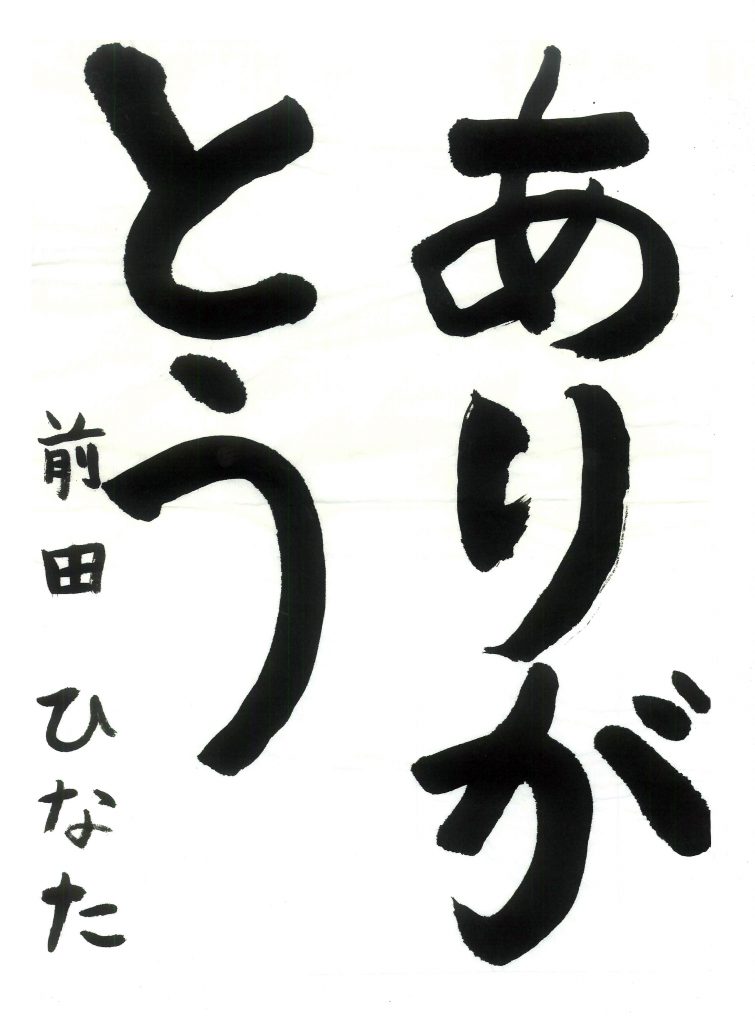 ありが
とう
前田 ひなた